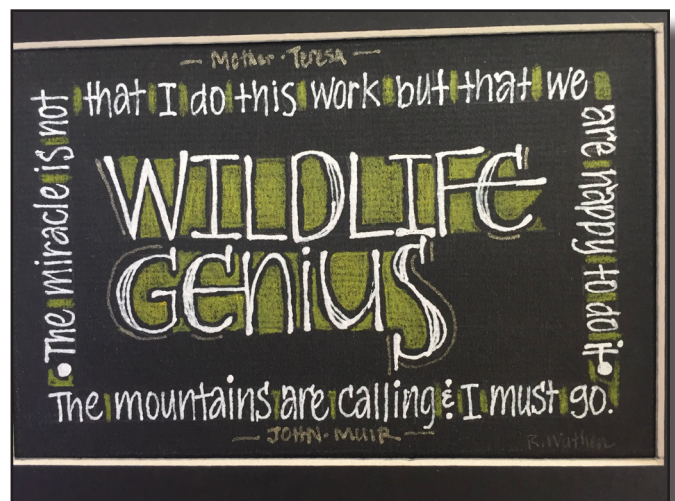 — Mother·Teresa —
The miracle is not
that I do this work but that we
are happy to do it.
WILDLIFE
GENIUS
The mountains are calling & I must go.
— JOHN·MUIR —